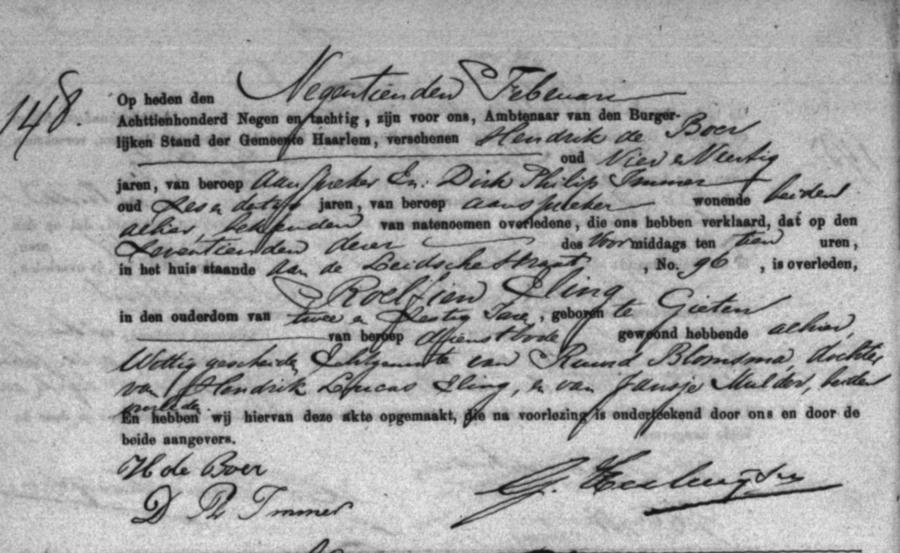 148.
Op heden den Negentienden Februari
Achttienhonderd Negen en tachtig, zijn voor ons, Ambtenaar van den Burger-
lijken Stand der Gemeente Haarlem, verschenen Hendrik de Boer
oud Vier en Veertig
jaren, van beroep Aanspreker En: Dirk Philip Immer
oud Zes en dertig jaren, van beroep aanspreker wonende beiden
alhier, bekenden van natenoemen overledene, die ons hebben verklaard, dat op den
Zeventienden dezer des Voormiddags ten tien uren,
in het huis staande Aan de Leidschestraat, No. 96, is overleden,
Roelfien Sling
in den ouderdom van twee en Zestig Jare, geboren te Gieten
van beroep dienstbode gewoond hebbende alhier,
Wettig gescheiden Echtgenoote van Blomsma, dochter
van Hendrik Lucas Sling, en van Jansje Mulder, beiden
overleden.
En hebben wij hiervan deze akte opgemaakt, die na voorlezing is onderteekend door ons en door de
beide aangevers.
H de Boer
D Ph Immer